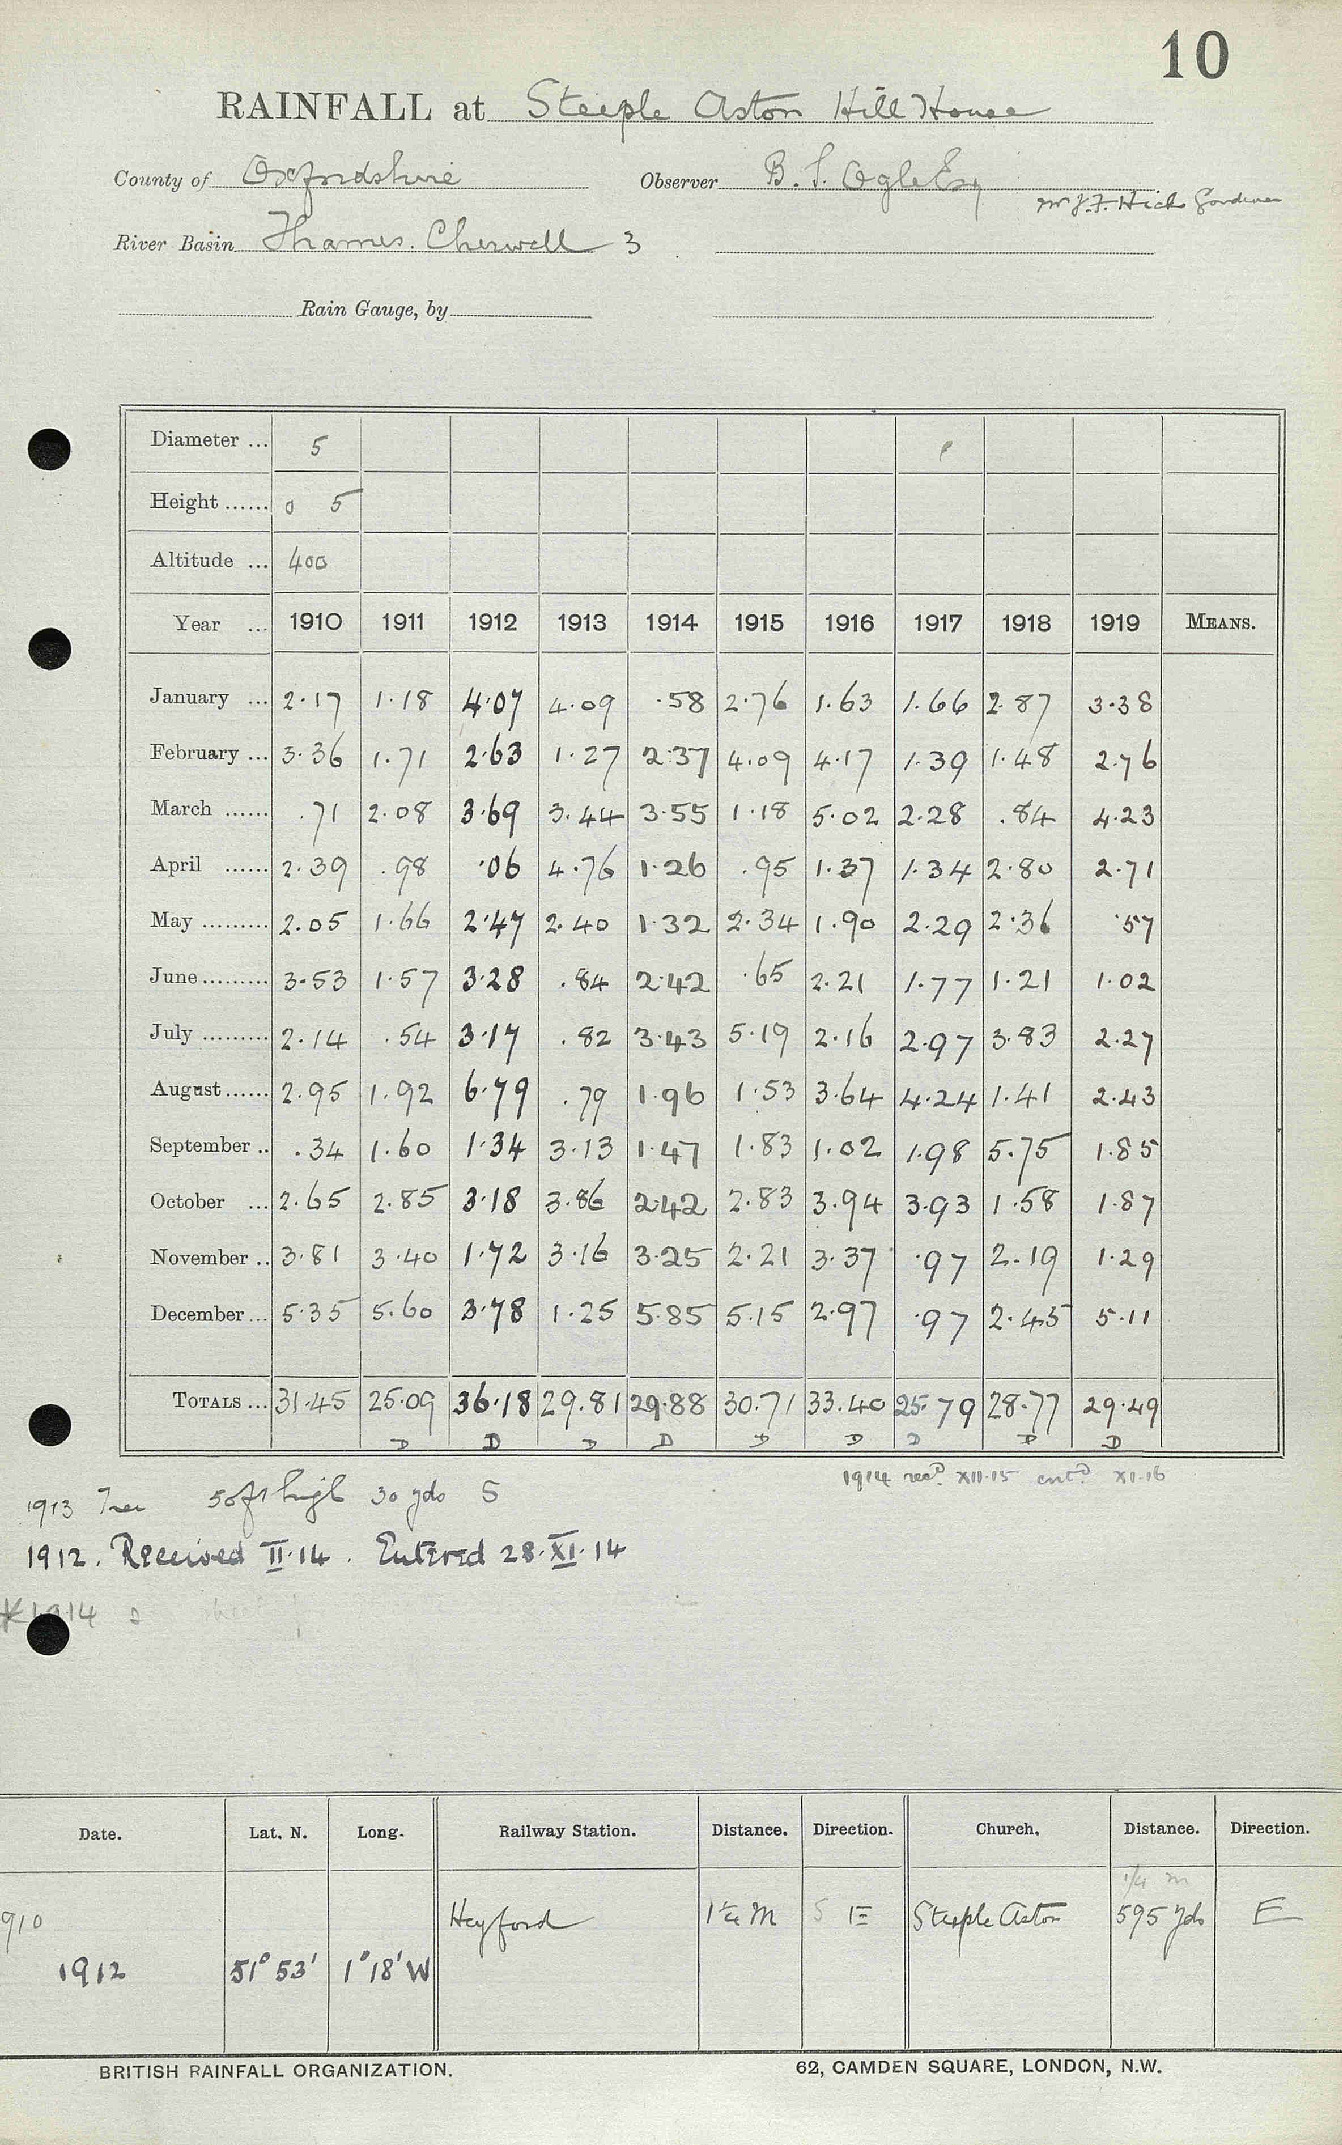 10
RAINFALL at Steeple Aston Hill House
County of Oxfordshire Observer B. S. Ogle Esq
Mr J.F. Hick Gardener
River Basin Thames. Cherwell 3
Rain Gauge, by
Diameter ... 5
Height ...... 0 5
Altitude ... 400
Year ... 1910 1911 1912 1913 1914 1915 1916 1917 1918 1919 MEANS.
January ... 2.17 1.18 4.07 4.09 .58 2.76 1.63 1.66 2.87 3.38
February ... 3.36 1.71 2.63 1.27 2.37 4.09 4.17 1.39 1.48 2.76
March ...... .71 2.08 3.69 3.44 3.55 1.18 5.02 2.28 .84 4.23
April ...... 2.39 .98 .06 4.76 1.26 .95 1.37 1.34 2.80 2.71
May ......... 2.05 1.66 2.47 2.40 1.32 2.34 1.90 2.29 2.36 .57
June......... 3.53 1.57 3.28 .84 2.42 .65 2.21 1.77 1.21 1.02
July ......... 2.14 .54 3.17 .82 3.43 5.19 2.16 2.97 3.83 2.27
August...... 2.95 1.92 6.79 .79 1.96 1.53 3.64 4.24 1.41 2.43
September .. .34 1.60 1.34 3.13 1.47 1.83 1.02 1.98 5.75 1.85
October ... 2.65 2.85 3.18 3.86 2.42 2.83 3.94 3.93 1.58 1.87
November .. 3.81 3.40 1.72 3.16 3.25 2.21 3.37 .97 2.19 1.29
December... 5.35 5.60 3.78 1.25 5.85 5.15 2.97 .97 2.45 5.11
TOTALS ... 31.45 25.09 36.18 29.81 29.88 30.71 33.40 25.79 28.77 29.49
D D D D D D D D D
1914 recd XII.15 entd XI.16
1913 Tree 50ft high 30 yds S
1912. Received II.14. Entered 28.XI.14
*1914
Date. Lat. N. Long. Railway Station. Distance. Direction. Church. Distance. Direction.
1/4 m
910 Heyford 1¼ M S E Steeple Aston 595 yds E
1912 51° 53' 1° 18' W
BRITISH RAINFALL ORGANIZATION. 62, CAMDEN SQUARE, LONDON, N.W.